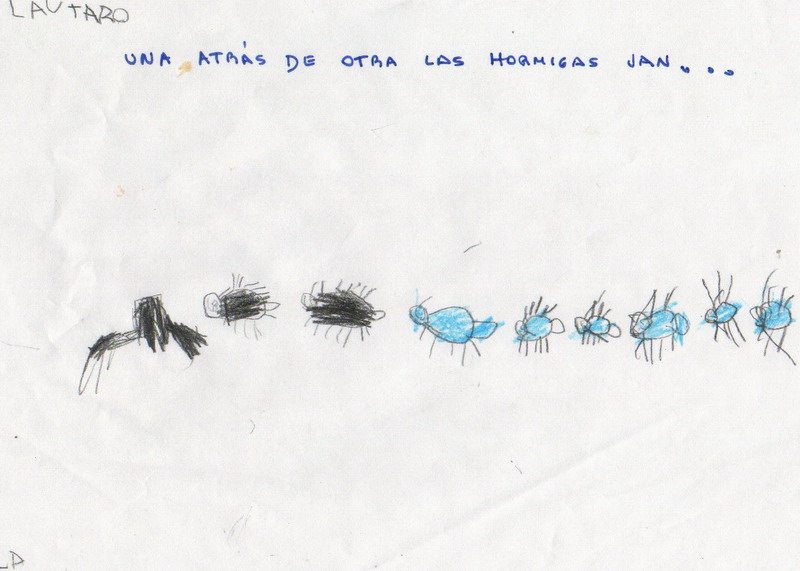 LAUTARO
UNA ATRÁS DE OTRA LAS HORMIGAS VAN...
LA